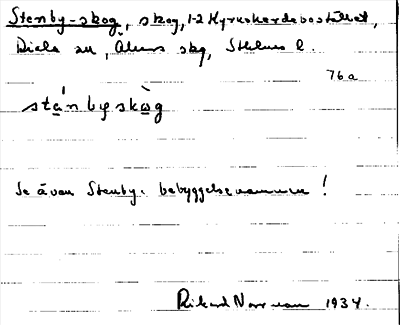 Stenby-skog, skog, 1-2 Kyrkoherdebostället,
sn, Åkers skg, Sthlms l.
76a
stánbyskòg
Se även Stenby i bebyggelsenamnen!
Rikard Norrman 1934.